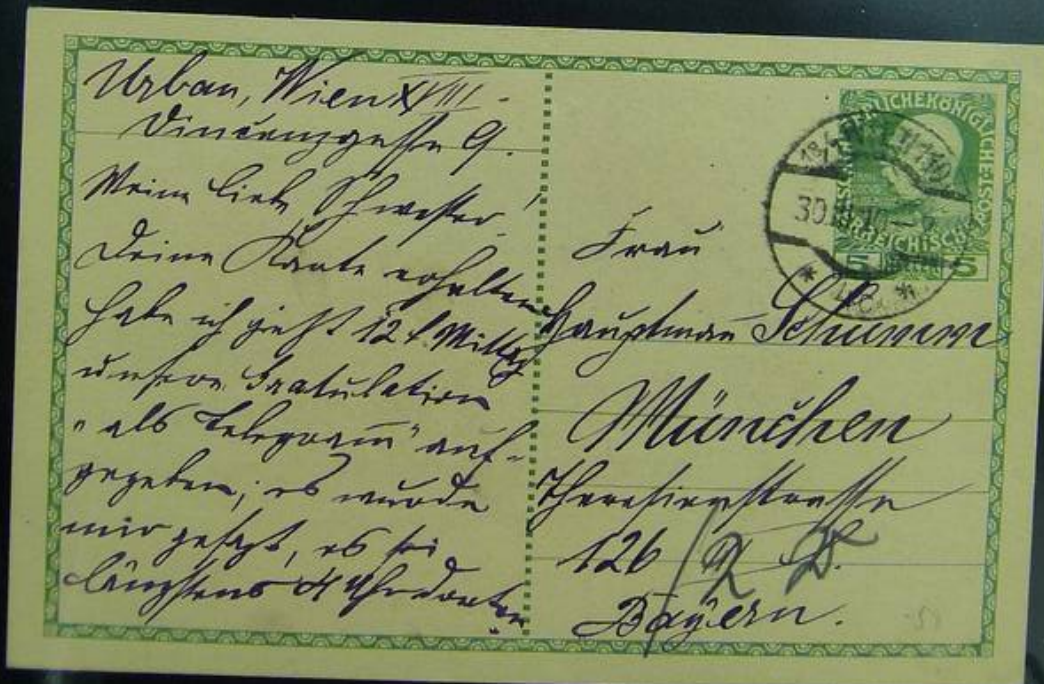 Urban, Wien XVIII.
Vincenzgasse 9.
Meine liebe Schwester!
Deine Karte erhalten
habe ich jetzt 12 h Mittag
unsere Gratulation
"als Telegram" auf-
gegeben; es wurde
mir gesagt, es sei
längstens 4 Uhr dorten
Frau
Hauptman Schumm
München
Theresienstrasse
126
Bayern.
5 5